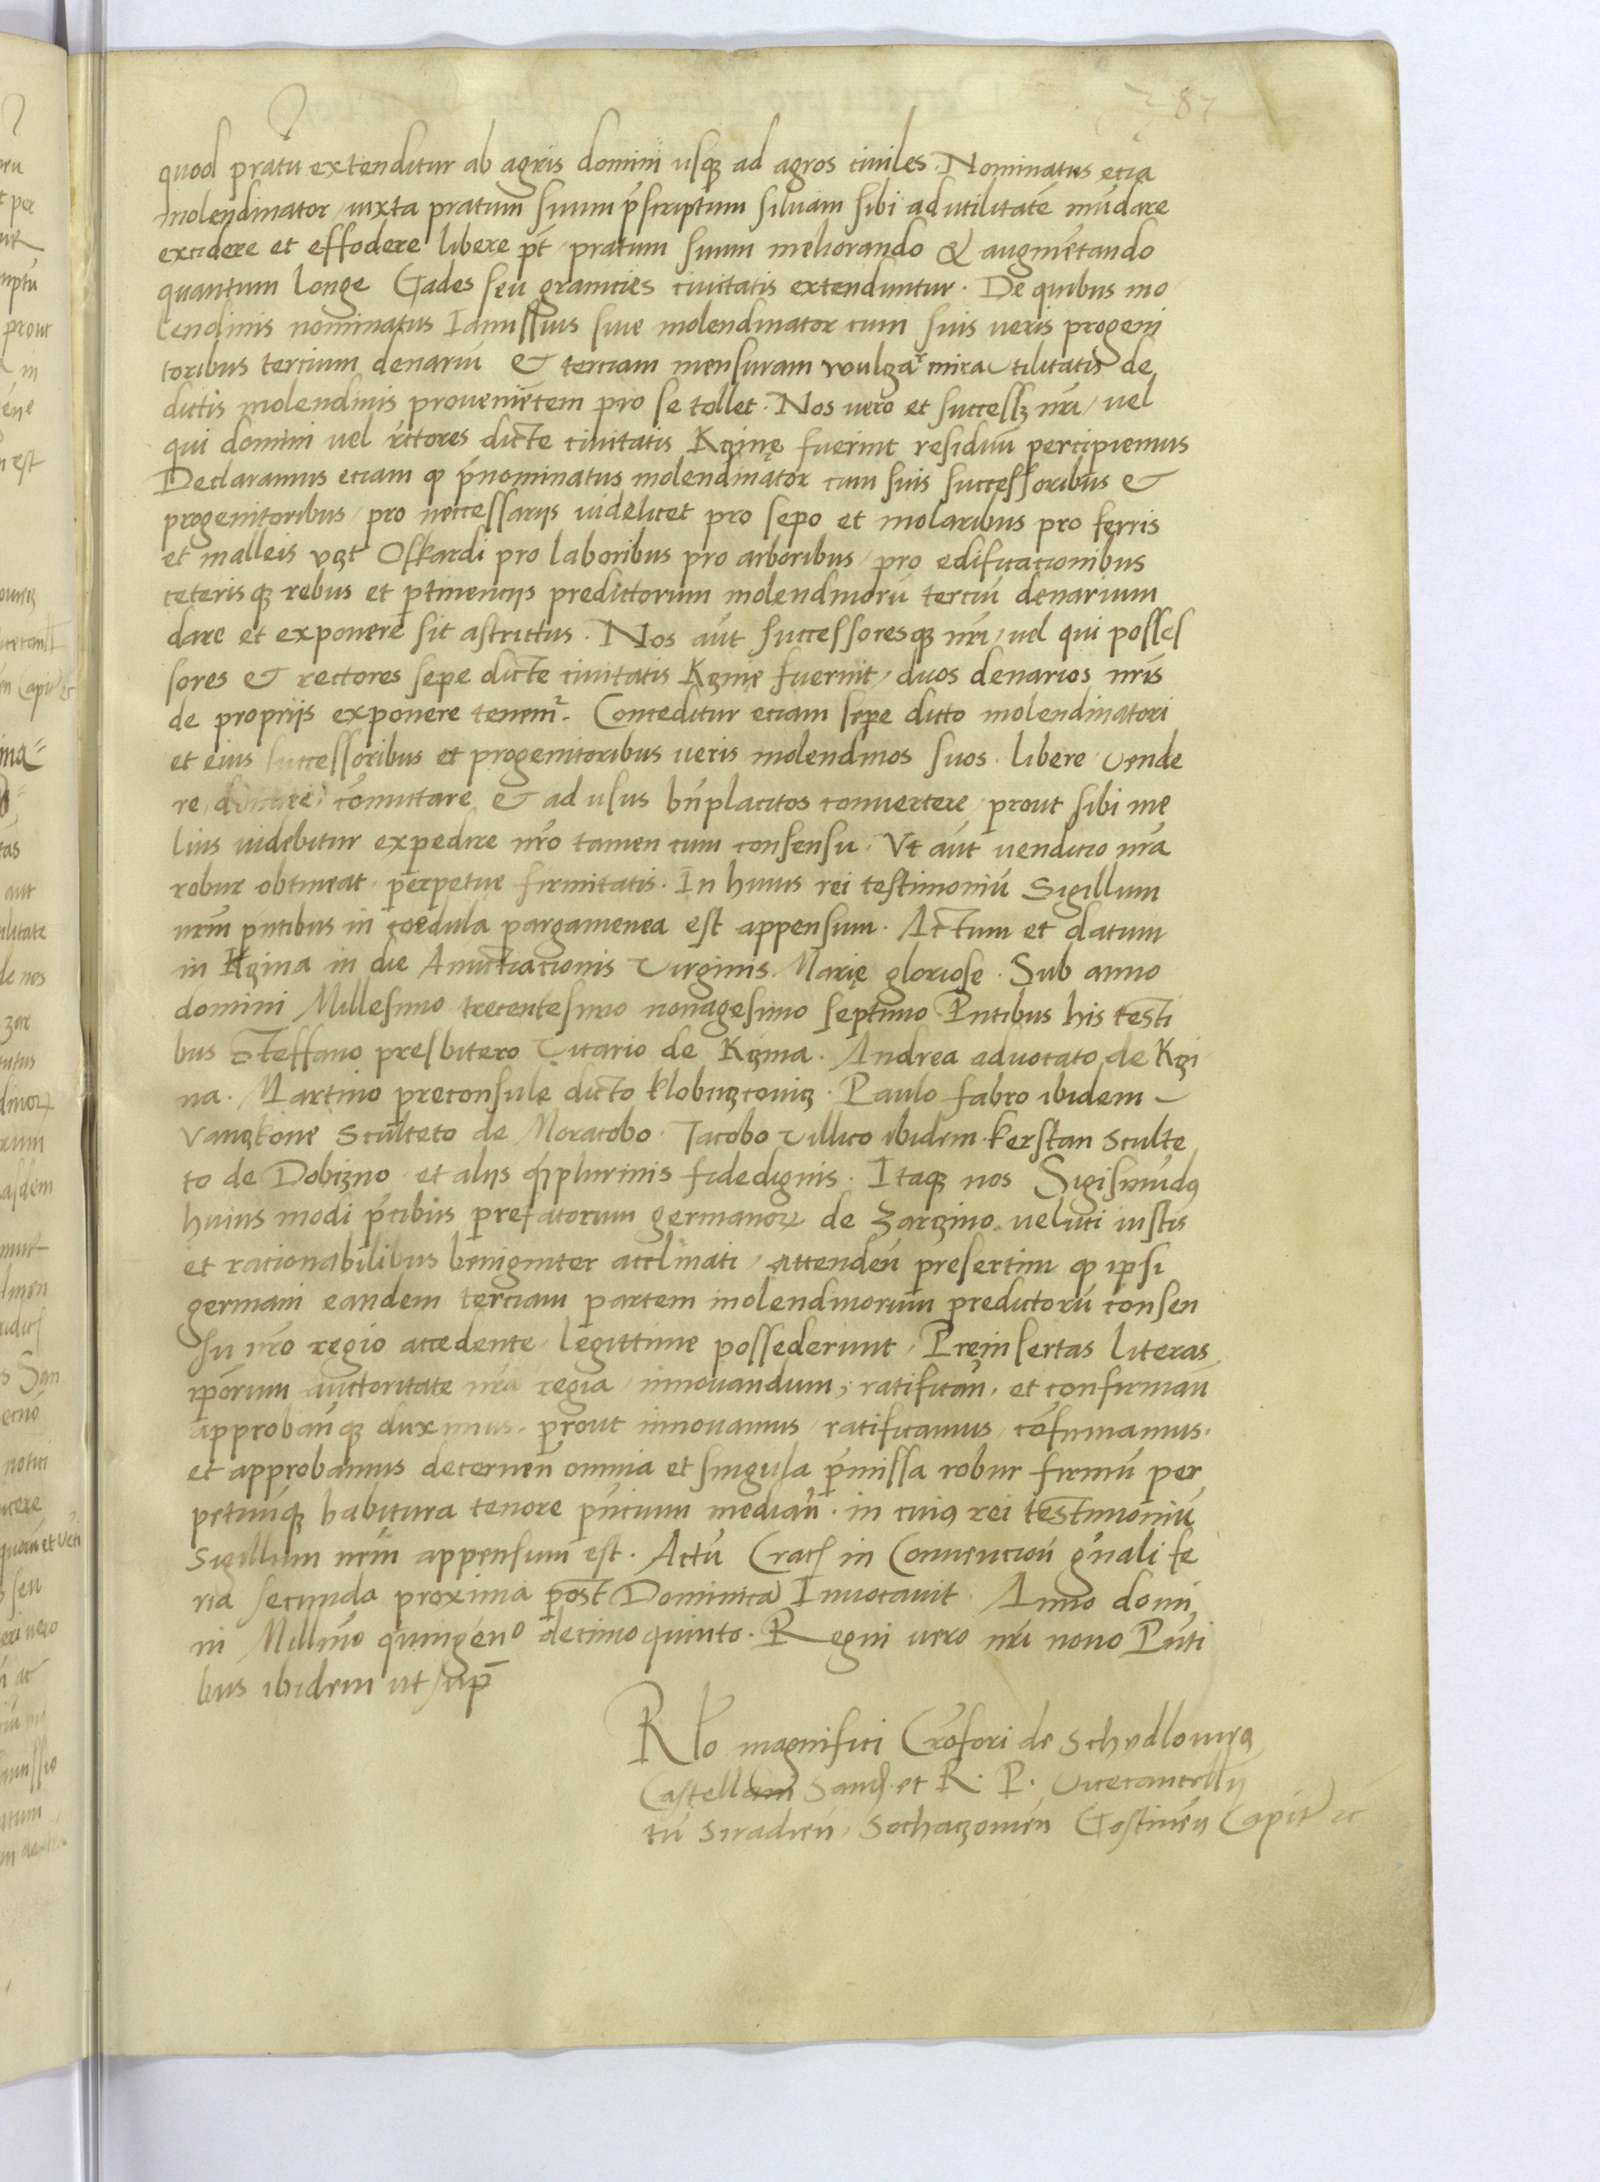 387
quod pratū extenditur ab agris domini usq̃ ad agros civiles. Nominatus ecia
molendinator iuxta pratum suum p̄scriptum siluam sibi ad utilitatē mūdare
excidere et effodere libere pt̄ pratum suum meliorando & augmētando
quantum longe Gades seu granicies civitatis extenduntur. De quibus mo
lendinis nominatus Ianussius sive molendinator cum suis veris progeni
toribus tercium denariū & terciam mensuram wulgar mirca utilitatis de
dictis molendinis provenientem pro se tollet. Nos vero et success nr̄i, vel
qui domini vel rectores dicte civitatis Kczinę fuerint residuū percipiemus
Declaramus eciam qp p̄nominatus molendinator cum suis successoribus &
progenitoribus pro neccessarijs videlicet pro sepo et molaribus pro ferris
et malleis vzt Oskardi pro laboribus pro arboribus, pro edificacionibus
ceterisq̃ rebus et ptinencijs predictorum molendinorū terciū denarium
dare et exponere sit astrictus. Nos aūt successoresq̃ nr̄i, vel qui posses
sores & rectores sepe dicte civitatis Kczinę fuerint, duos denarios nr̄is
de proprijs exponere tenem̄r. Conceditur eciam sepe dicto molendinatori
et eius successoribus et progenitoribus veris molendinos suos libere vende
re, donare, cōmutare & ad usus bn̄placitos convertere, prout sibi me
lius videbitur expedire nr̄o tamen cum consensu. Ut aūt vendicio nr̄a
robur obtineat perpetue firmitatis. In huius rei testimoniū Sigillum
nr̄m p̄ntibus in coedula pargamenea est appensum. Actum et datum
in Kczina in die Anūctiacionis Virginis Marię gloriose. Sub anno
domini Millesimo trecentesimo nonagesimo septimo P̄ntibus his testi
bus Steffano presbitero Vicario de Kczina. Andrea advocato de Kczi
na. Martino preconsule dicto Klobuczcoviz. Paulo fabro ibidem
Vanzkone Sculteto de Moracobo. Jacobo Villico ibidem. Kerstan Sculte
to de Dobizno et alijs q̄plurimis fidedignis. Itaq̃ nos Sigismūdꝰ
huiusmodi p̄cibus prefatorum germanoꝝ de Zarczino veluti iustis
et racionabilibus benigniter acclinati, Attendeñ presertim qp ipsi
germani eandem terciam partem molendinorum predictorū consen
su nr̄o regio accedente legittime possederunt, Preinsertas literas
ip̄orum auctoritate nr̄a regia innovandum, ratificañ. et confirmañ
approbañq̃ duximus. prout innovamus, ratificamus, cōfirmamus.
et approbamus decerneñ omnia et singula p̄missa robur firmū per
petuūq̃ habitura tenore p̄ncium mediañ. in cuiꝰ rei testimoniū
Sigillum nr̄m appensum est. Actū Crac̄ in Convencioñ gñali fe
ria secunda proxima post Dominicā Invocavit Anno domi
ni Mill̄mo quingen̄o decimo quinto. Regni vero nr̄i nono P̄nti
bus ibidem ut sup̄
Rl̄o magnifici Cr̄ofori de Schydlowycz
Castellani Sand̄. et R. P. Vicecancellij
tū Siradieñ, Sochaczovieñ Gostineñ Capit̄ ꝛc